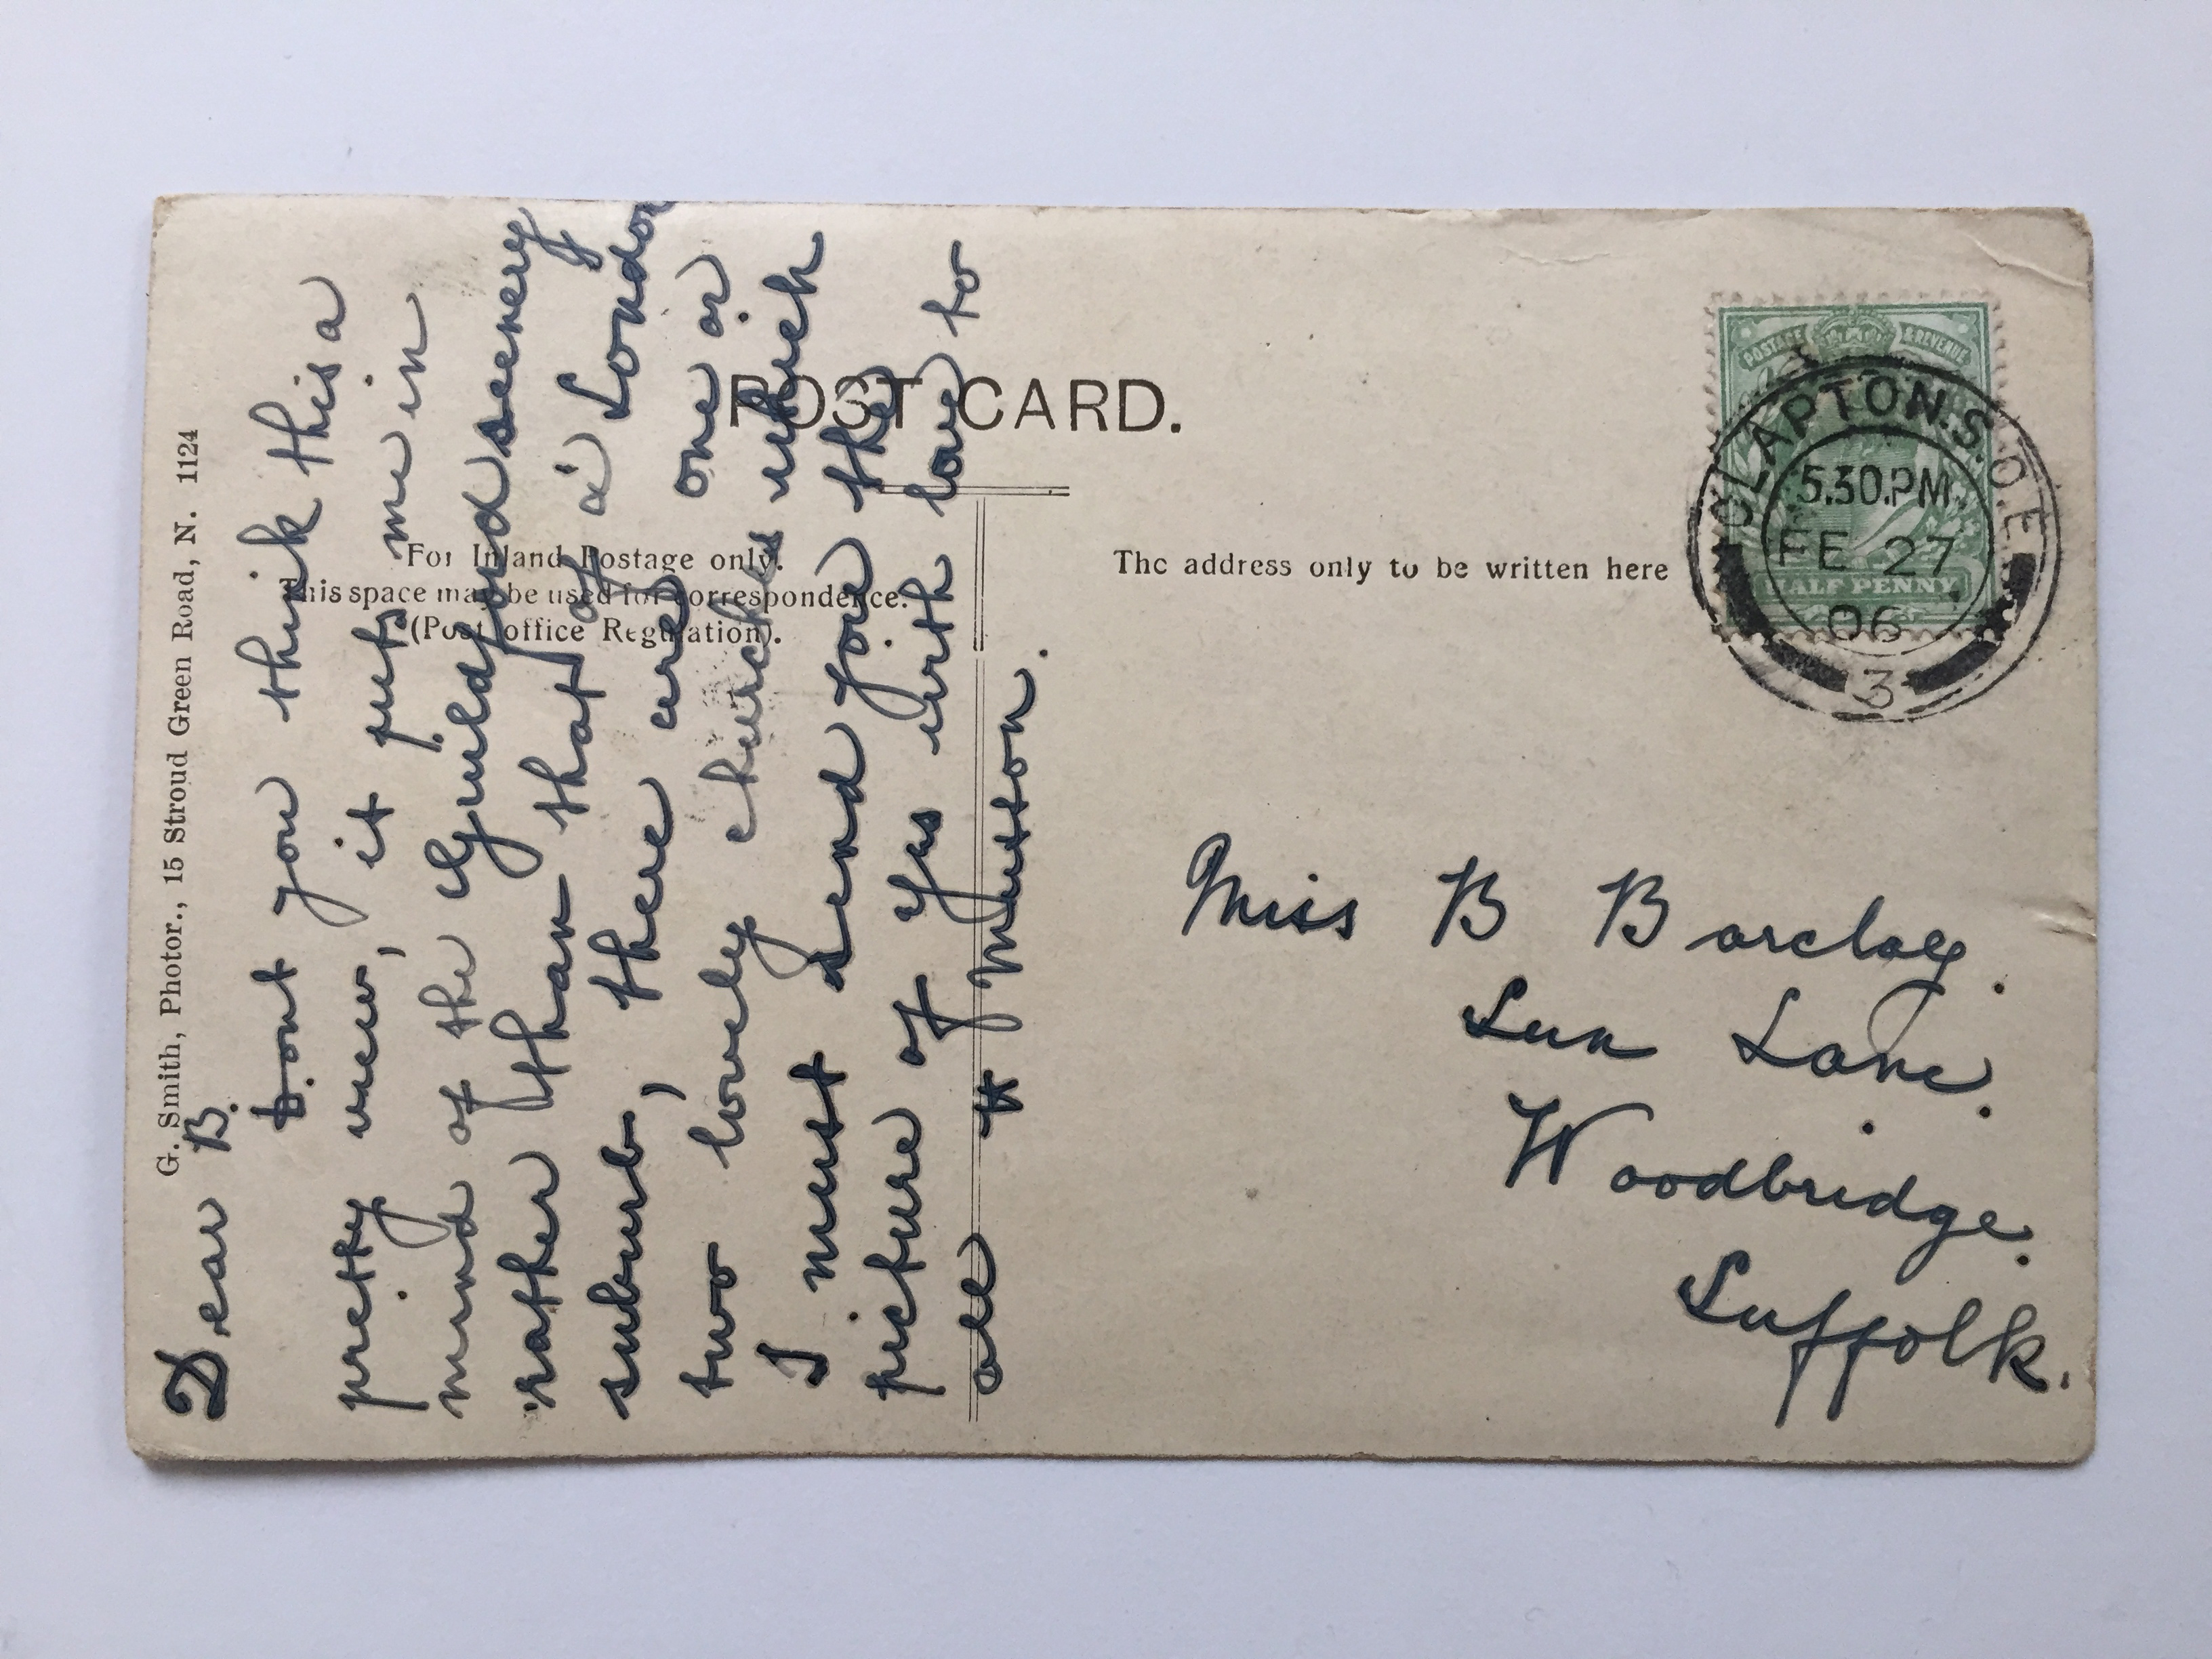 G. Smith, Photor., 15 Stroud Green Road, N. 1124
POST CARD.
For Inland Postage only.
This space may be used for correspondence.
(Post office Regulation).
The address only to be written here
POSTAGE & REVENUE
HALF PENNY
CLAPTON. S.O. E
5.30.PM
FE 27
06
3
Dear B.
Dont you think this a
pretty view, it puts me in
mind of the Guildford scenery
rather than that of a London
suburb, there are one or
two lovely churches which
I must send you the
picture of Yrs with love to
all H Muston.
Miss B Barclay.
Sun Lane.
Woodbridge.
Suffolk.